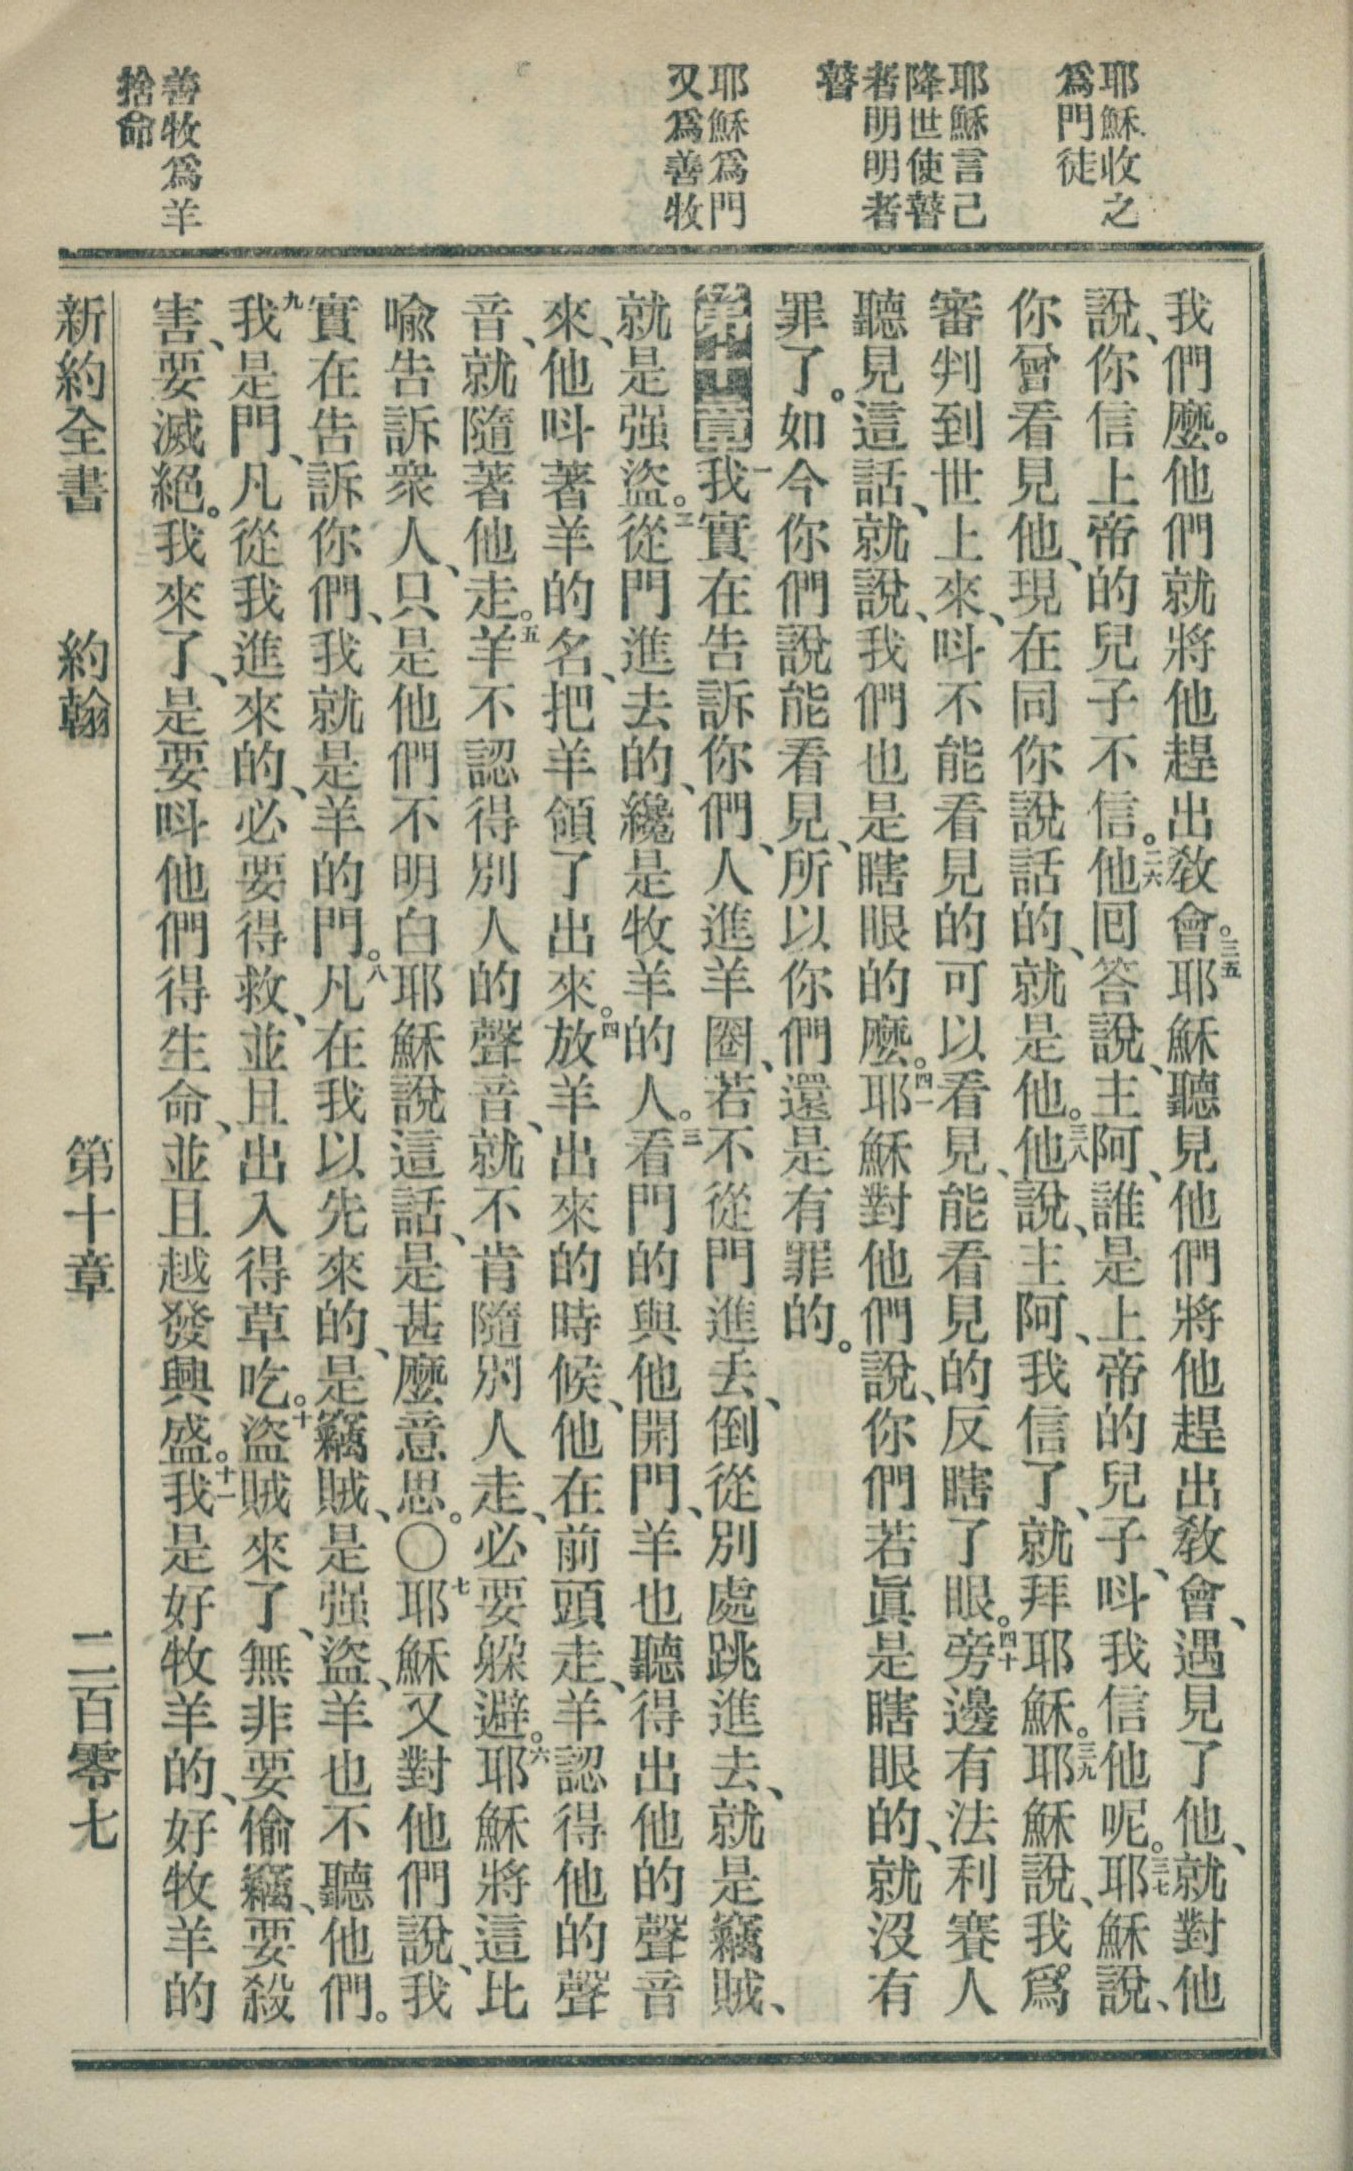 耶穌收之
爲門徒
耶穌言己
降世使瞽
者明明者
瞽
耶穌爲門
又爲善牧
善牧爲羊
捨命
我們麼。他們就將他趕出教會。三五耶穌聽見他們將他趕出教會、遇見了他、就對他
說、你信上帝的兒子不信。二六他回答說、主阿、誰是上帝的兒子、呌我信他呢。三七耶穌說、
你曾看見他、現在同你說話的、就是他。三八他說、主阿、我信了、就拜耶穌。三九耶穌說、我爲
審判到世上來、呌不能看見的可以看見、能看見的反瞎了眼。四十旁邊有法利賽人
聽見這話、就說、我們也是瞎眼的麼。四一耶穌對他們說、你們若眞是瞎眼的、就沒有
罪了。如今你們說能看見、所以你們還是有罪的。
第十章一我實在告訴你們、人進羊圈、若不從門進去、倒從別處跳進去、就是竊賊、
就是强盜。二從門進去的、纔是牧羊的人。三看門的與他開門、羊也聽得出他的聲音
來、他呌著羊的名、把羊領了出來。四放羊出來的時候、他在前頭走、羊認得他的聲
音、就隨著他走。五羊不認得別人的聲音、就不肯隨別人走、必要躱避。六耶穌將這比
喩告訴衆人、只是他們不明白耶穌說這話、是甚麼意思。〇七耶穌又對他們說、我
實在告訴你們、我就是羊的門。八凡在我以先來的、是竊賊、是强盜、羊也不聽他們。
九我是門、凡從我進來的、必要得救、並且出入得草吃。十盜賊來了、無非要偷竊、要殺
害、要滅絕。我來了、是要呌他們得生命、並且越發興盛。十一我是好牧羊的、好牧羊的
新約全書 約翰 第十章 二百零七